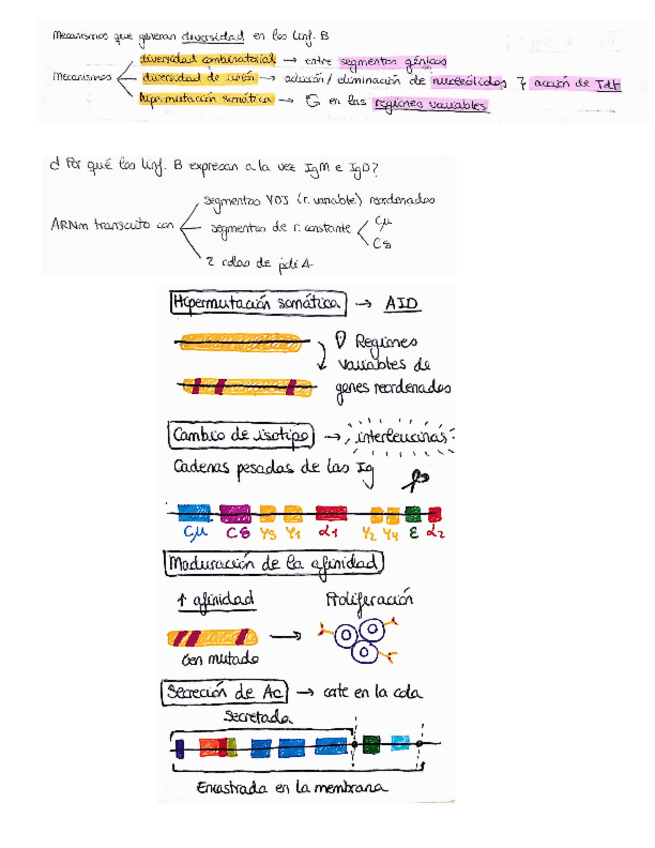 Mecanismos que generan diversidad en los linf. B
diversidad combinatorial → entre segmentos génicos
Mecanismos diversidad de unión → adición/eliminación de nucleótidos acción de TdT
hipermutación somática → en las regiones variables
¿Por qué los linf. B expresan a la vez IgM e IgD?
segmentos VDJ (r. variable) reordenados
ARNm transcrito con segmentos de r. constante Cμ
Cδ
2 colas de poli A
Hipermutación somática → AID
Regiones
variables de
genes reordenados
Cambio de isotipo → interleucinas
Cadenas pesadas de las Ig
Cμ Cδ γ3 γ1 α1 γ2 γ4 ε α2
Maduración de la afinidad
↑ afinidad Proliferación
Gen mutado
Secreción de Ac → corte en la cola
Secretada
Encastrada en la membrana